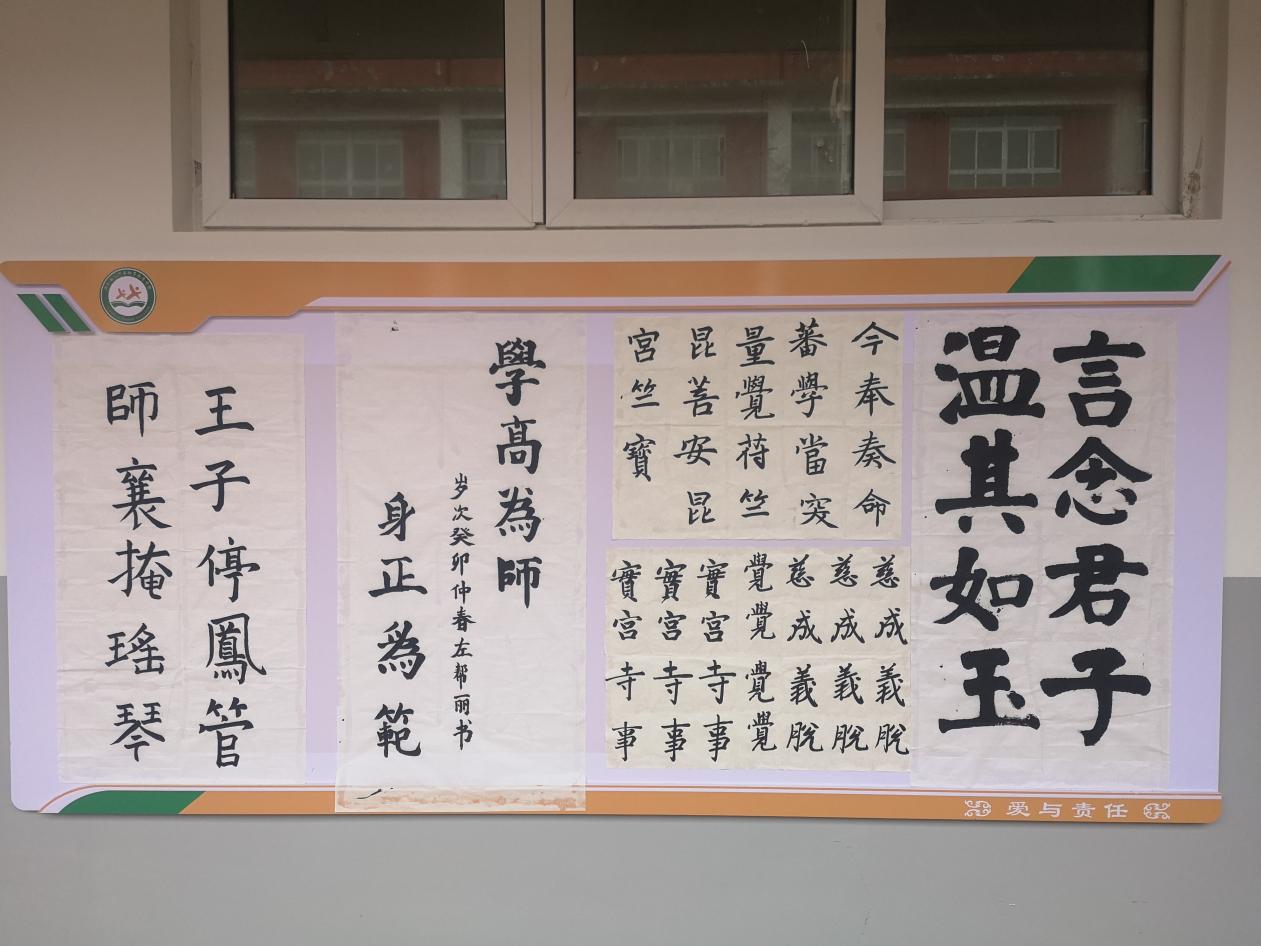 言念君子
温其如玉
今奉奏命
蕃學當突
量覺竺
昆菩安昆
宮竺寶
慈成義脫
慈成義脫
慈成義脫
覺覺覺覺
寶宮寺事
寶宮寺事
寶宮寺事
學髙為師
岁次癸卯仲春左帮丽书
身正為範
王子停鳳管
師襄掩瑤琴
爱与责任